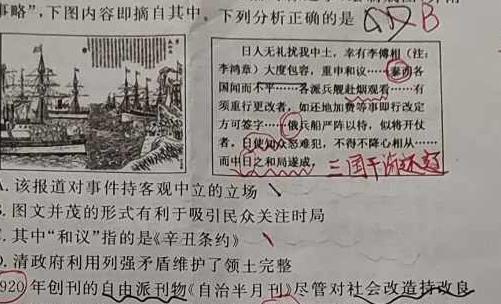 事略”，下图内容即摘自其中。下列分析正确的是
B
日人无礼扰我中土，幸有李傅相（注：
李鸿章）大度包容，重申和议……泰西各
国闻而不平……各派兵舰赴烟观看……有
须重行更改者，如还地加费等事即行改定
方可签字……俄兵船严阵以待，似将开仗
者，日使知众怒难犯，不得不降心相从……
而中日之和局遂成。
三国干涉还辽
A. 该报道对事件持客观中立的立场
B. 图文并茂的形式有利于吸引民众关注时局
C. 其中“和议”指的是《辛丑条约》
D. 清政府利用列强矛盾维护了领土完整
920年创刊的自由派刊物《自治半月刊》尽管对社会改造持改良